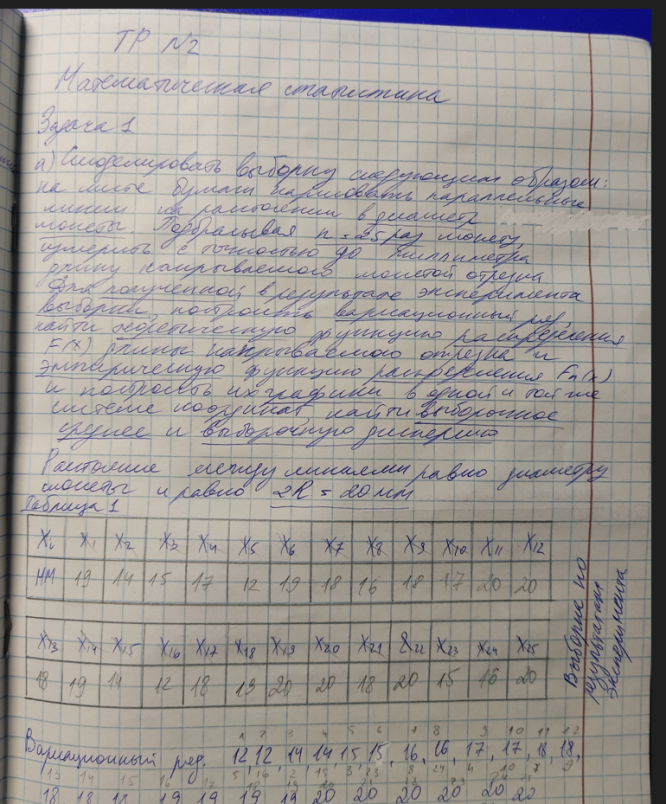 ТР №2
Математическая статистика
Задача 1
а) Смоделировать выборку следующим образом:
на листе бумаги нарисовать параллельные
линии на расстоянии в диаметр
монеты. Подбрасывая n = 25 раз монету,
измерить с точностью до миллиметра
длину накрываемого монетой отрезка
Для полученной в результате эксперимента
выборки построить вариационный ряд,
найти теоретическую функцию распределения
F(x) длины накрываемого отрезка и
эмпирическую функцию распределения Fn(x)
и построить их графики в одной и той же
системе координат найти выборочное
среднее и выборочную дисперсию
Расстояние между линиями равно диаметру
монеты и равно 2R = 20 мм
Таблица 1
Xi X1 X2 X3 X4 X5 X6 X7 X8 X9 X10 X11 X12
мм 19 14 15 17 12 19 18 16 18 17 20 20
X13 X14 X15 X16 X17 X18 X19 X20 X21 X22 X23 X24 X25
18 19 14 12 18 19 20 20 18 20 15 16 20
Выборка по
результатам
эксперимента
Вариационный ряд. 12, 12, 14, 14, 15, 15, 16, 16, 17, 17, 18, 18,
18 18 18 19 19 19 19 20 20 20 20 20 20